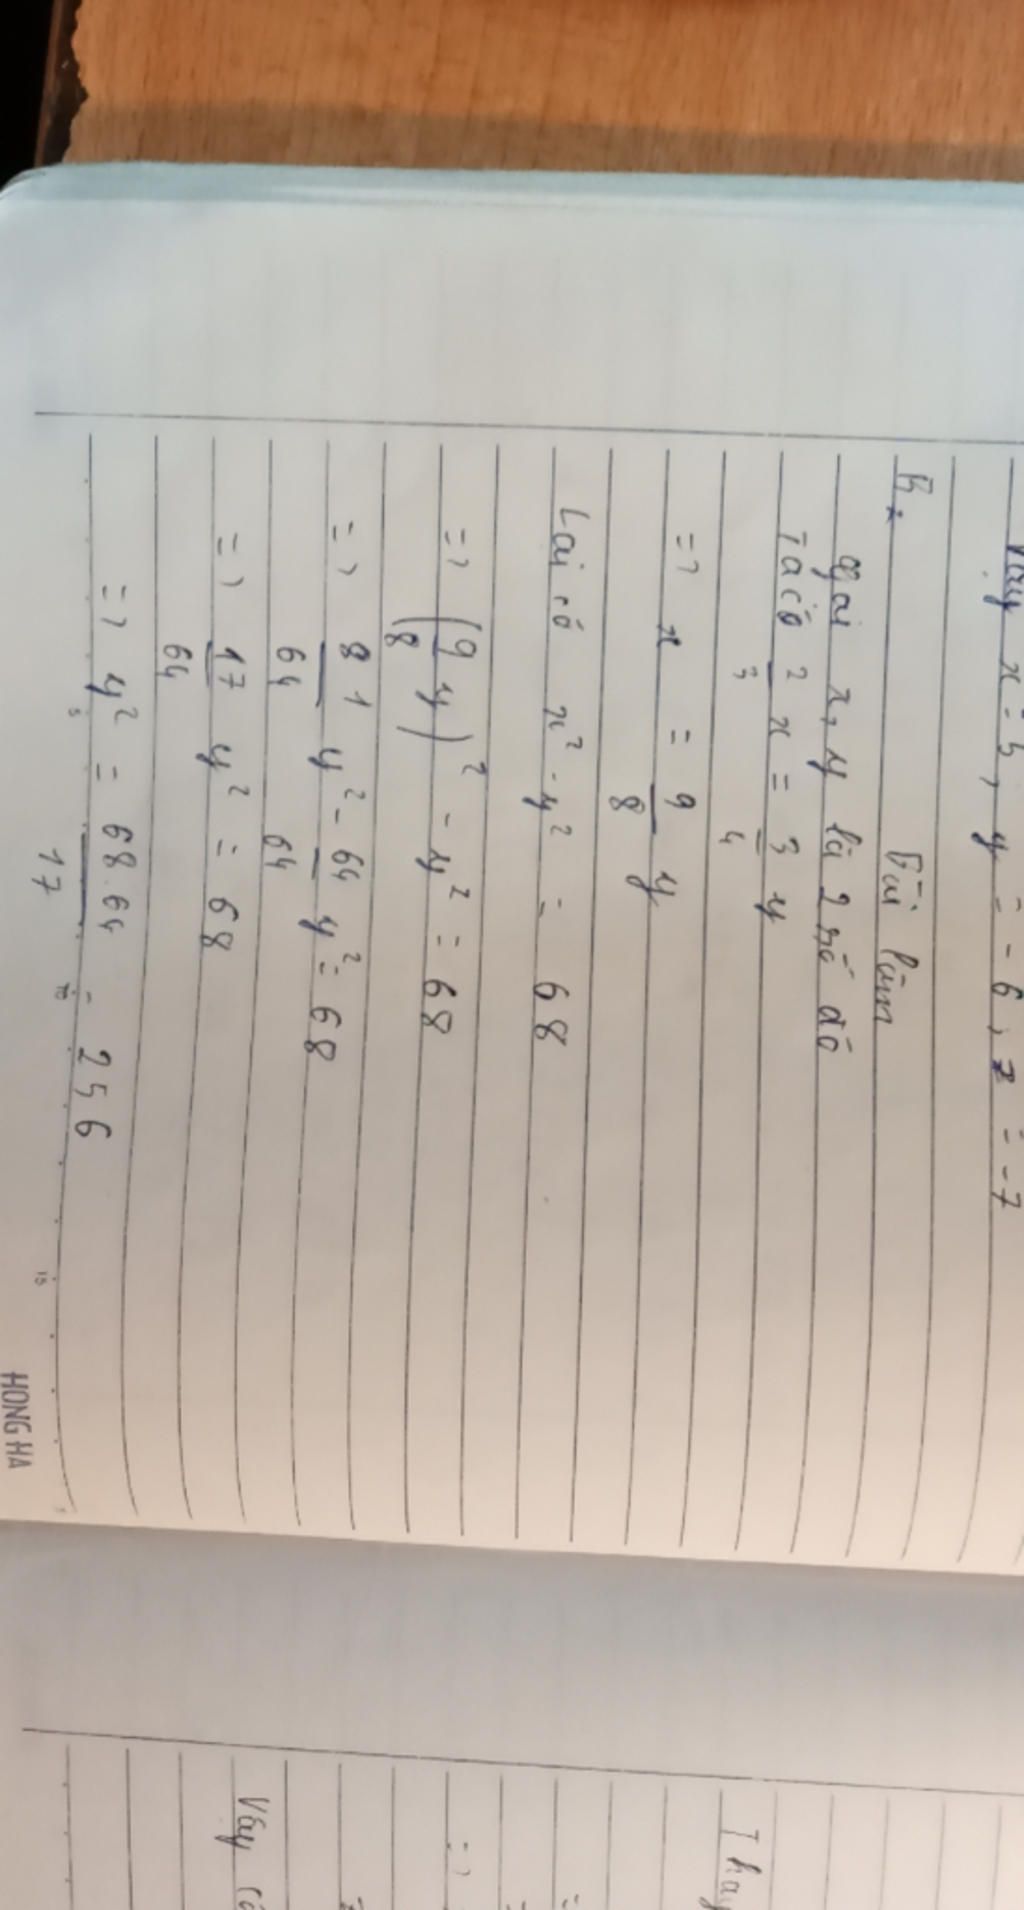 Vậy x = 5, y = -6, z = -7
B2
Bài làm
gọi x, y là 2 số đó
Ta có 2/3 x = 3/4 y
=> x = 9/8 y
Lại có x² - y² = 68
=> (9/8 y)² - y² = 68
=> 81/64 y² - 64/64 y² = 68
=> 17/64 y² = 68
=> y² = 68.64/17 = 256
5 10 15
HONG HA
Thay
=>
Vậy có